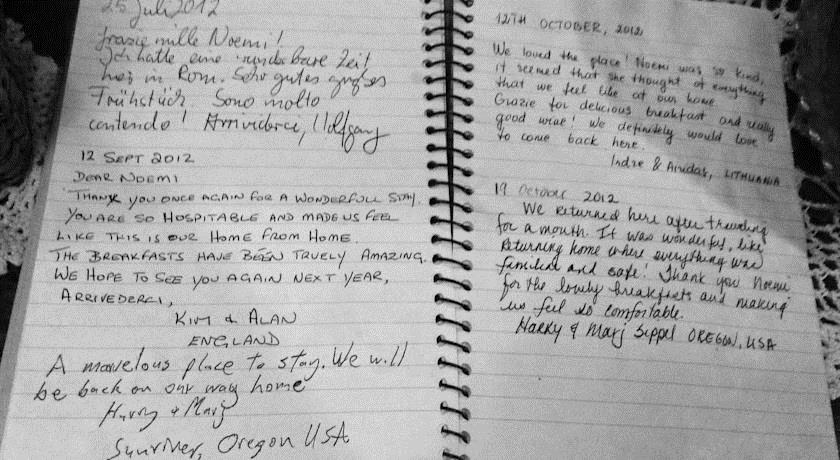 25 Juli 2012
Grazie mille Noemi!
Ich hatte eine wunderbare Zeit
hier in Rom. Sehr gutes großes
Frühstück. Sono molto
contendo! Arrividerci, Wolfgang
12 SEPT 2012
DEAR NOEMI
THANK YOU ONCE AGAIN FOR A WONDERFULL STAY.
YOU ARE SO HOSPITABLE AND MADE US FEEL
LIKE THIS IS OUR HOME FROM HOME.
THE BREAKFASTS HAVE BEEN TRUELY AMAZING.
WE HOPE TO SEE YOU AGAIN NEXT YEAR,
ARRIVEDERCI,
KIM & ALAN
ENGLAND
A marvelous place to stay. We will
be back on our way home
Harry & Marj
Sunriver, Oregon USA
12TH OCTOBER, 2012
We loved the place! Noemi was so kind,
it seemed that she thought of everything
that we feel like at our home.
Grazie for delicious breakfast and really
good wine! We definitely would love
to come back here.
Indre & Arvidas, LITHUANIA
19 October 2012
We returned here after traveling
for a month. It was wonderful, like
returning home where everything was
familiar and safe! Thank you Noemi
for the lovely breakfasts and making
us feel so comfortable.
Harry & Marj Sippel OREGON, USA